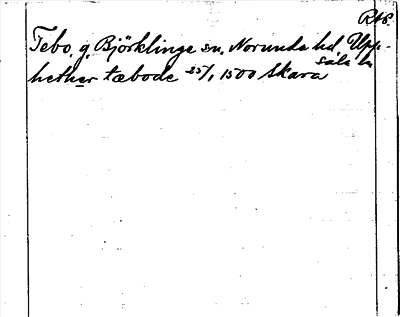 RAS.
Tebo, g, Björklinge sn, Norunda hd, Upp-
sala l.
hether tæbode 25/1 1500 Skara